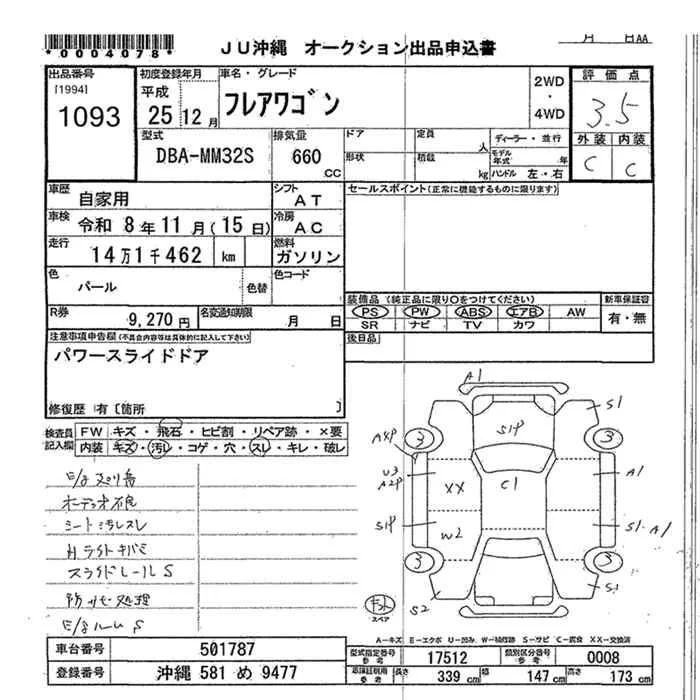 *0004078*
JU沖縄 オークション出品申込書
月 日AA
出品番号
[1994]
1093
初度登録年月
平成
25 12 月
車名・グレード
フレアワゴン
2WD
・
4WD
評価点
3.5
外装 内装
C C
型式
DBA-MM32S
排気量
660
CC
ドア
定員
人
ディーラー・並行
形状
積載
kg
モデル年式 年
ハンドル 左・右
車歴
自家用
シフト
AT
セールスポイント(正常に機能するものに限ります)
車検
令和 8 年 11 月(15 日)
冷房
AC
走行
14万1千462 km
燃料
ガソリン
色
パール
色替
色コード
装備品 (純正品に限り○をつけてください)
新車保証書
PS PW ABS エアB AW
SR ナビ TV カワ
有・無
R券
9,270 円
名変通知期限
月 日
後日品
注意事項申告欄(不具合内容等は具体的に記入して下さい)
パワースライドドア
修復歴 有〔箇所 〕
検査員
記入欄
FW キズ・飛石・ヒビ割・リペア跡・×要
内装 キズ・汚レ・コゲ・穴・スレ・キレ・破レ
シート汚レスレ
Hライトキバミ
スライドレールS
防サビ処理
E/gルームS
A1
S1
S1P
3
3
A4P
U3
A2P
XX
C1
A1
S1P
W2
S1
A1
3
3
S2
S1
スペア
A－キズ E－エクボ U－凹み W－補修跡 S－サビ C－腐食 XX－交換済
車台番号
501787
登録番号
沖縄 581 め 9477
型式指定番号
参考
17512
類別区分番号
参考
0008
車庫証明用
参考
長さ
339 cm
幅
147 cm
高さ
173 cm